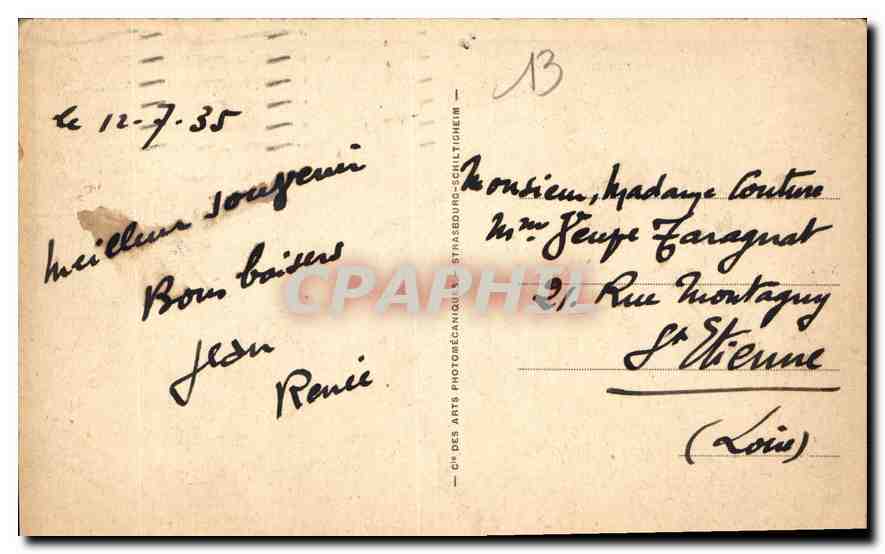 le 12-7-35
Meilleur souvenir
Bons baisers
Jean
Renée
— Cie DES ARTS PHOTOMÉCANIQUES — STRASBOURG-SCHILTIGHEIM —
CPAPHIL
13
Monsieur, Madame Couture
Mme Taragnat
21 Rue Montagny
St Etienne
(Loire)